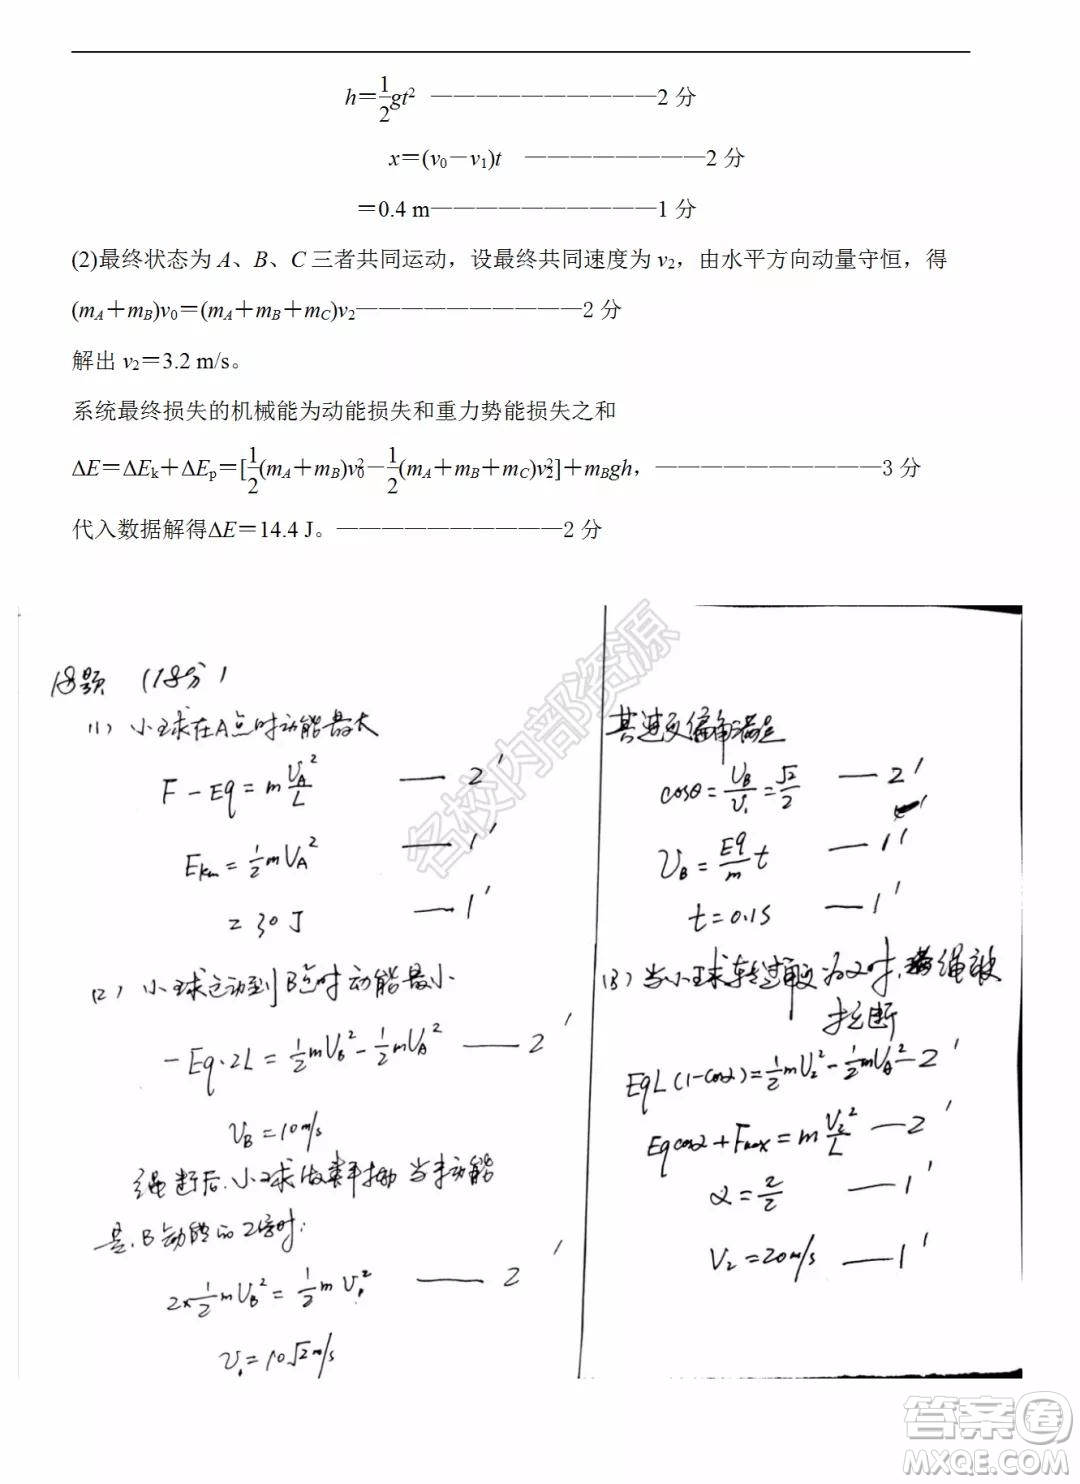 h=1/2gt² ——————————2 分
x=(v₀-v₁)t ————————2 分
=0.4 m——————————1 分
(2)最终状态为 A、B、C 三者共同运动，设最终共同速度为 v₂，由水平方向动量守恒，得
(mA+mB)v₀=(mA+mB+mC)v₂——————————2 分
解出 v₂=3.2 m/s。
系统最终损失的机械能为动能损失和重力势能损失之和
ΔE=ΔEk+ΔEp=[1/2(mA+mB)v₀²-1/2(mA+mB+mC)v₂²]+mBgh，——————————3 分
代入数据解得ΔE=14.4 J。——————————2 分
18题 (18分)
(1) 小球在A点时动能最大
F-Eq=m VA²/L — 2'
Ekm=1/2mVA² — 1'
=30J — 1'
(2) 小球运动到B点时动能最小
-Eq·2L=1/2mVB²-1/2mVA² — 2'
VB=10m/s
绳断后,小球做类平抛 当动能
是B动能的2倍时:
2×1/2mVB²=1/2mV₁² — 2'
V₁=10√2m/s
其速度偏角满足
cosθ=VB/V₁=√2/2 — 2'
VB=Eq/m t — 1'
t=0.1S — 1'
(3) 当小球转过角度为α时,绳被
拉断
EqL(1-cosα)=1/2mV₂²-1/2mVA² — 2'
Eqcosα+Fmax=mV₂²/L — 2'
α=2/2 — 1'
V₂=20m/s — 1'
名校内部资源
答案卷
MXQE.COM